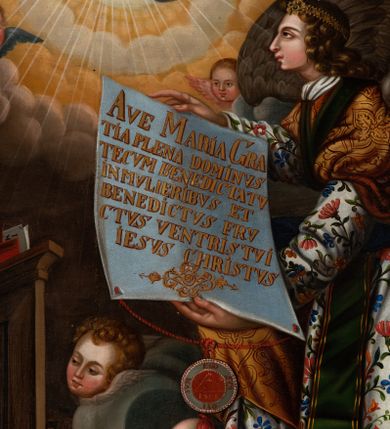 AVE MARIA GRA
TIA PLENA DOMINUS
TECUM BENEDICTATU
IN MULIERIBUS ET
BENEDICTUS FRU
CTUS VENTRIS TUI
IESUS CHRISTUS